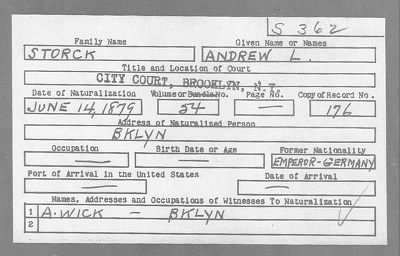 S 362
Family Name Given Name or Names
STORCK ANDREW L.
Title and Location of Court
CITY COURT, BROOKLYN, N.Y.
Date of Naturalization Volume or Bundle No. Page No. Copy of Record No.
JUNE 14, 1879 54 — 176
Address of Naturalized Person
BKLYN
Occupation Birth Date or Age Former Nationality
— — EMPEROR-GERMANY
Port of Arrival in the United States Date of Arrival
— —
Names, Addresses and Occupations of Witnesses To Naturalization
1 A. WICK — BKLYN
2